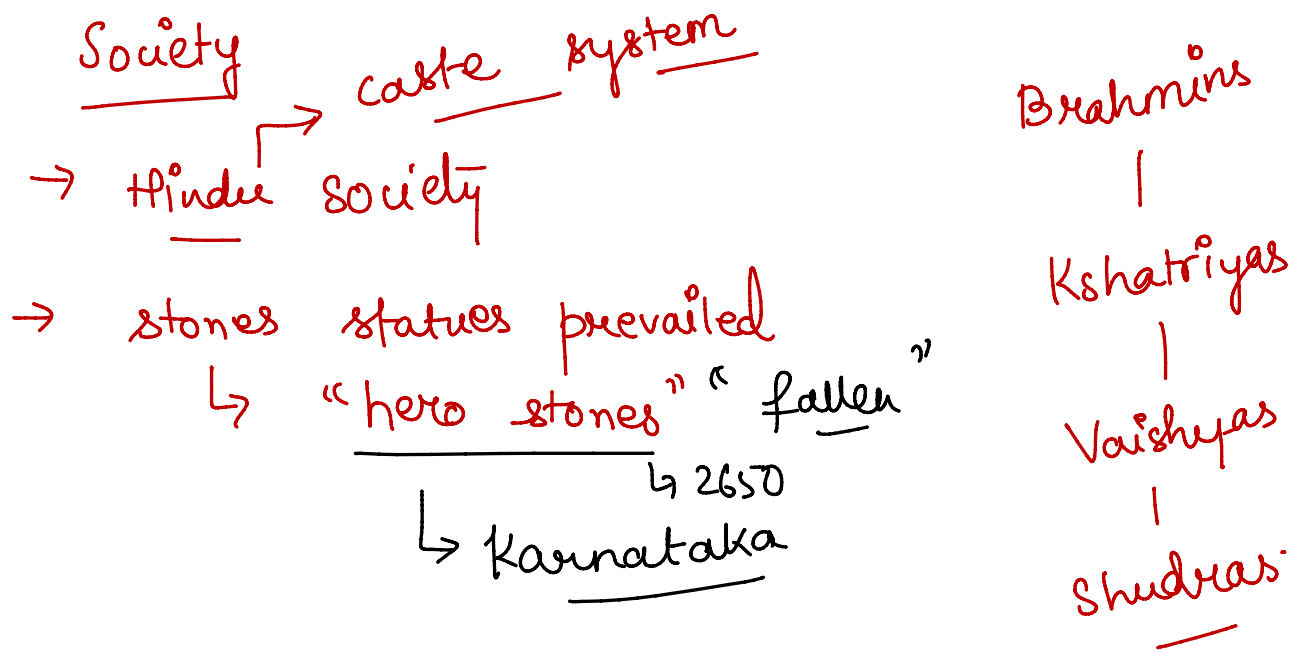 Society
caste system
→ Hindu society
→ stones statues prevailed
↳ "hero stones" "fallen"
↳ 2650
↳ Karnataka
Brahmins
|
Kshatriyas
|
Vaishyas
|
Shudras